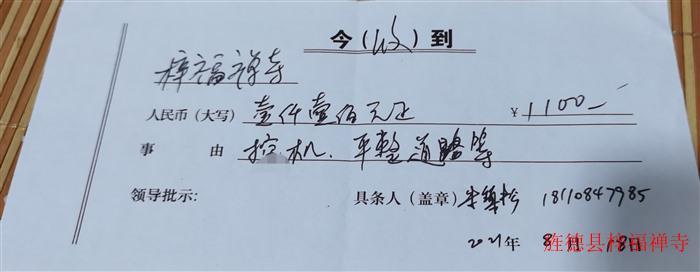 今（收）到
梓福禅寺
人民币（大写）壹仟壹佰元正 ¥1100—
事 由 挖机、平整道路等
领导批示： 具条人（盖章） 18110847985
2021年 8月 18日
旌德县梓福禅寺